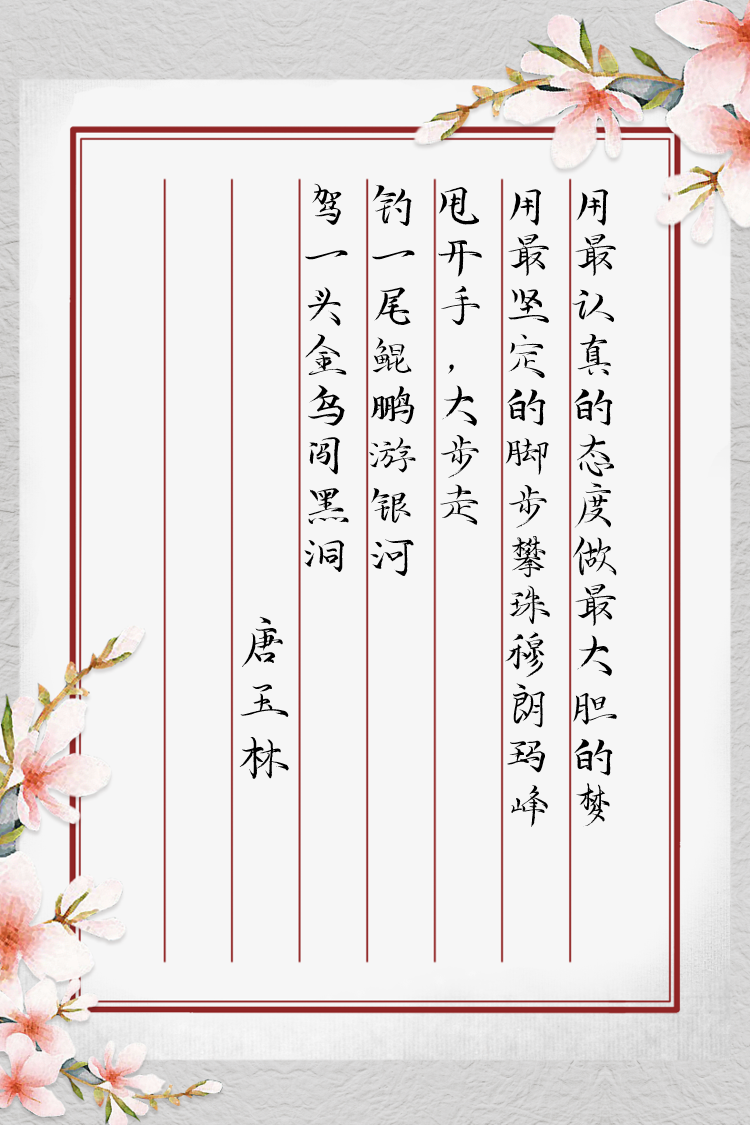 用最认真的态度做最大胆的梦
用最坚定的脚步攀珠穆朗玛峰
甩开手，大步走
钓一尾鲲鹏游银河
驾一头金乌闯黑洞
唐玉林